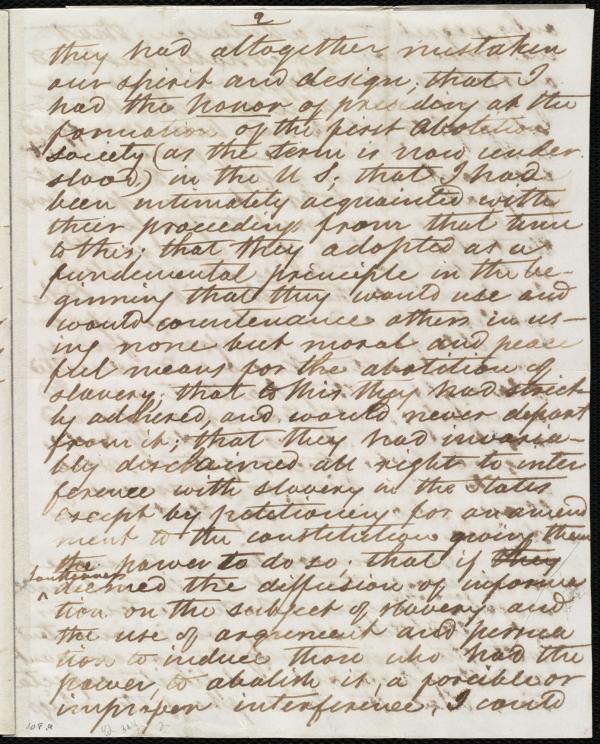 2
they had altogether mistaken
our spirit and design; that I
had the honor of presiding at the
formation of the first Abolition
Society (as the term is now under
stood,) in the U S; that I had
been intimately acquainted with
their proceedings from that time
to this; that they adopted as a
fundamental principle in the be-
ginning that they would use and
would countenance others in us-
ing none but moral and peace
ful means for the abolition of
slavery; that to this they had strict
ly adhered, and would never depart
from it; that they had invaria-
bly disclaimed all right to inter
ference with slavery in the States
except by petitioning for an amend
ment to the constitution giving them
the power to do so; that if they
Southerners
^ deemed the diffusion of informa
tion on the subject of slavery and
the use of argument and persua
tion to induce those who had the
power, to abolish it, a forcible or
improper interference, I could